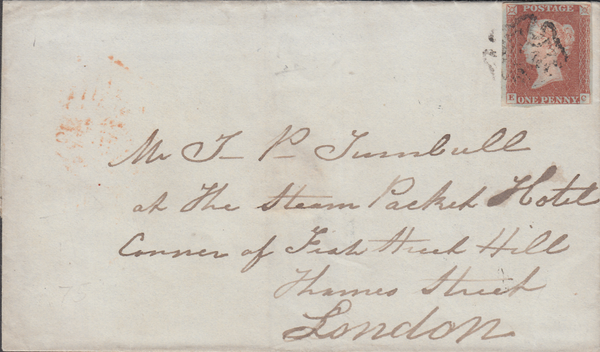 POSTAGE
ONE PENNY
Mr T P Turnbull
at The Steam Packet Hotel
Conner of Fish Street Hill
Thames Street
London